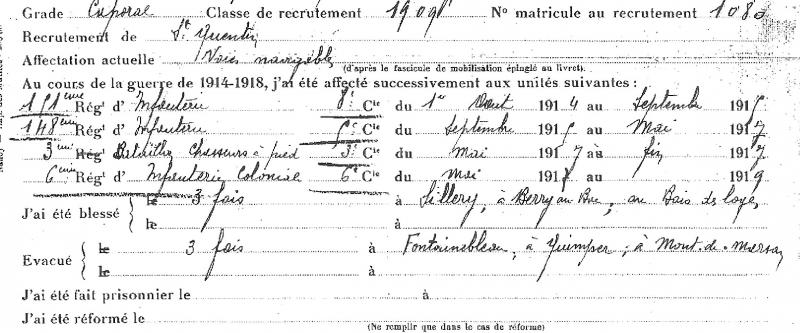 Grade Caporal Classe de recrutement 1909 N° matricule au recrutement 108
Recrutement de St Quentin
Affectation actuelle Voies navigables
(d'après le fascicule de mobilisation épinglé au livret).
Au cours de la guerre de 1914-1918, j'ai été affecté successivement aux unités suivantes :
Régt d' Infanterie 8e Cie du 1er Aout 1914 au Septembre 191
148ème Régt d' Infanterie Cie du Septembre 191 au Mai 1917
3ème Régt Bataillon Chasseurs à pied 3e Cie du Mai 1917 à fin 1917
6ème Régt d' Infanterie Coloniale 6e Cie du Mai 191 au 1919
J'ai été blessé le 3 fois à Sillery, à Berry au Bac, au Bois de
le à
Evacué le 3 fois à Fontainebleau, à Quimper, à Mont-de-Marsan
le à
J'ai été fait prisonnier le à
J'ai été réformé le
(Ne remplir que dans le cas de réforme)